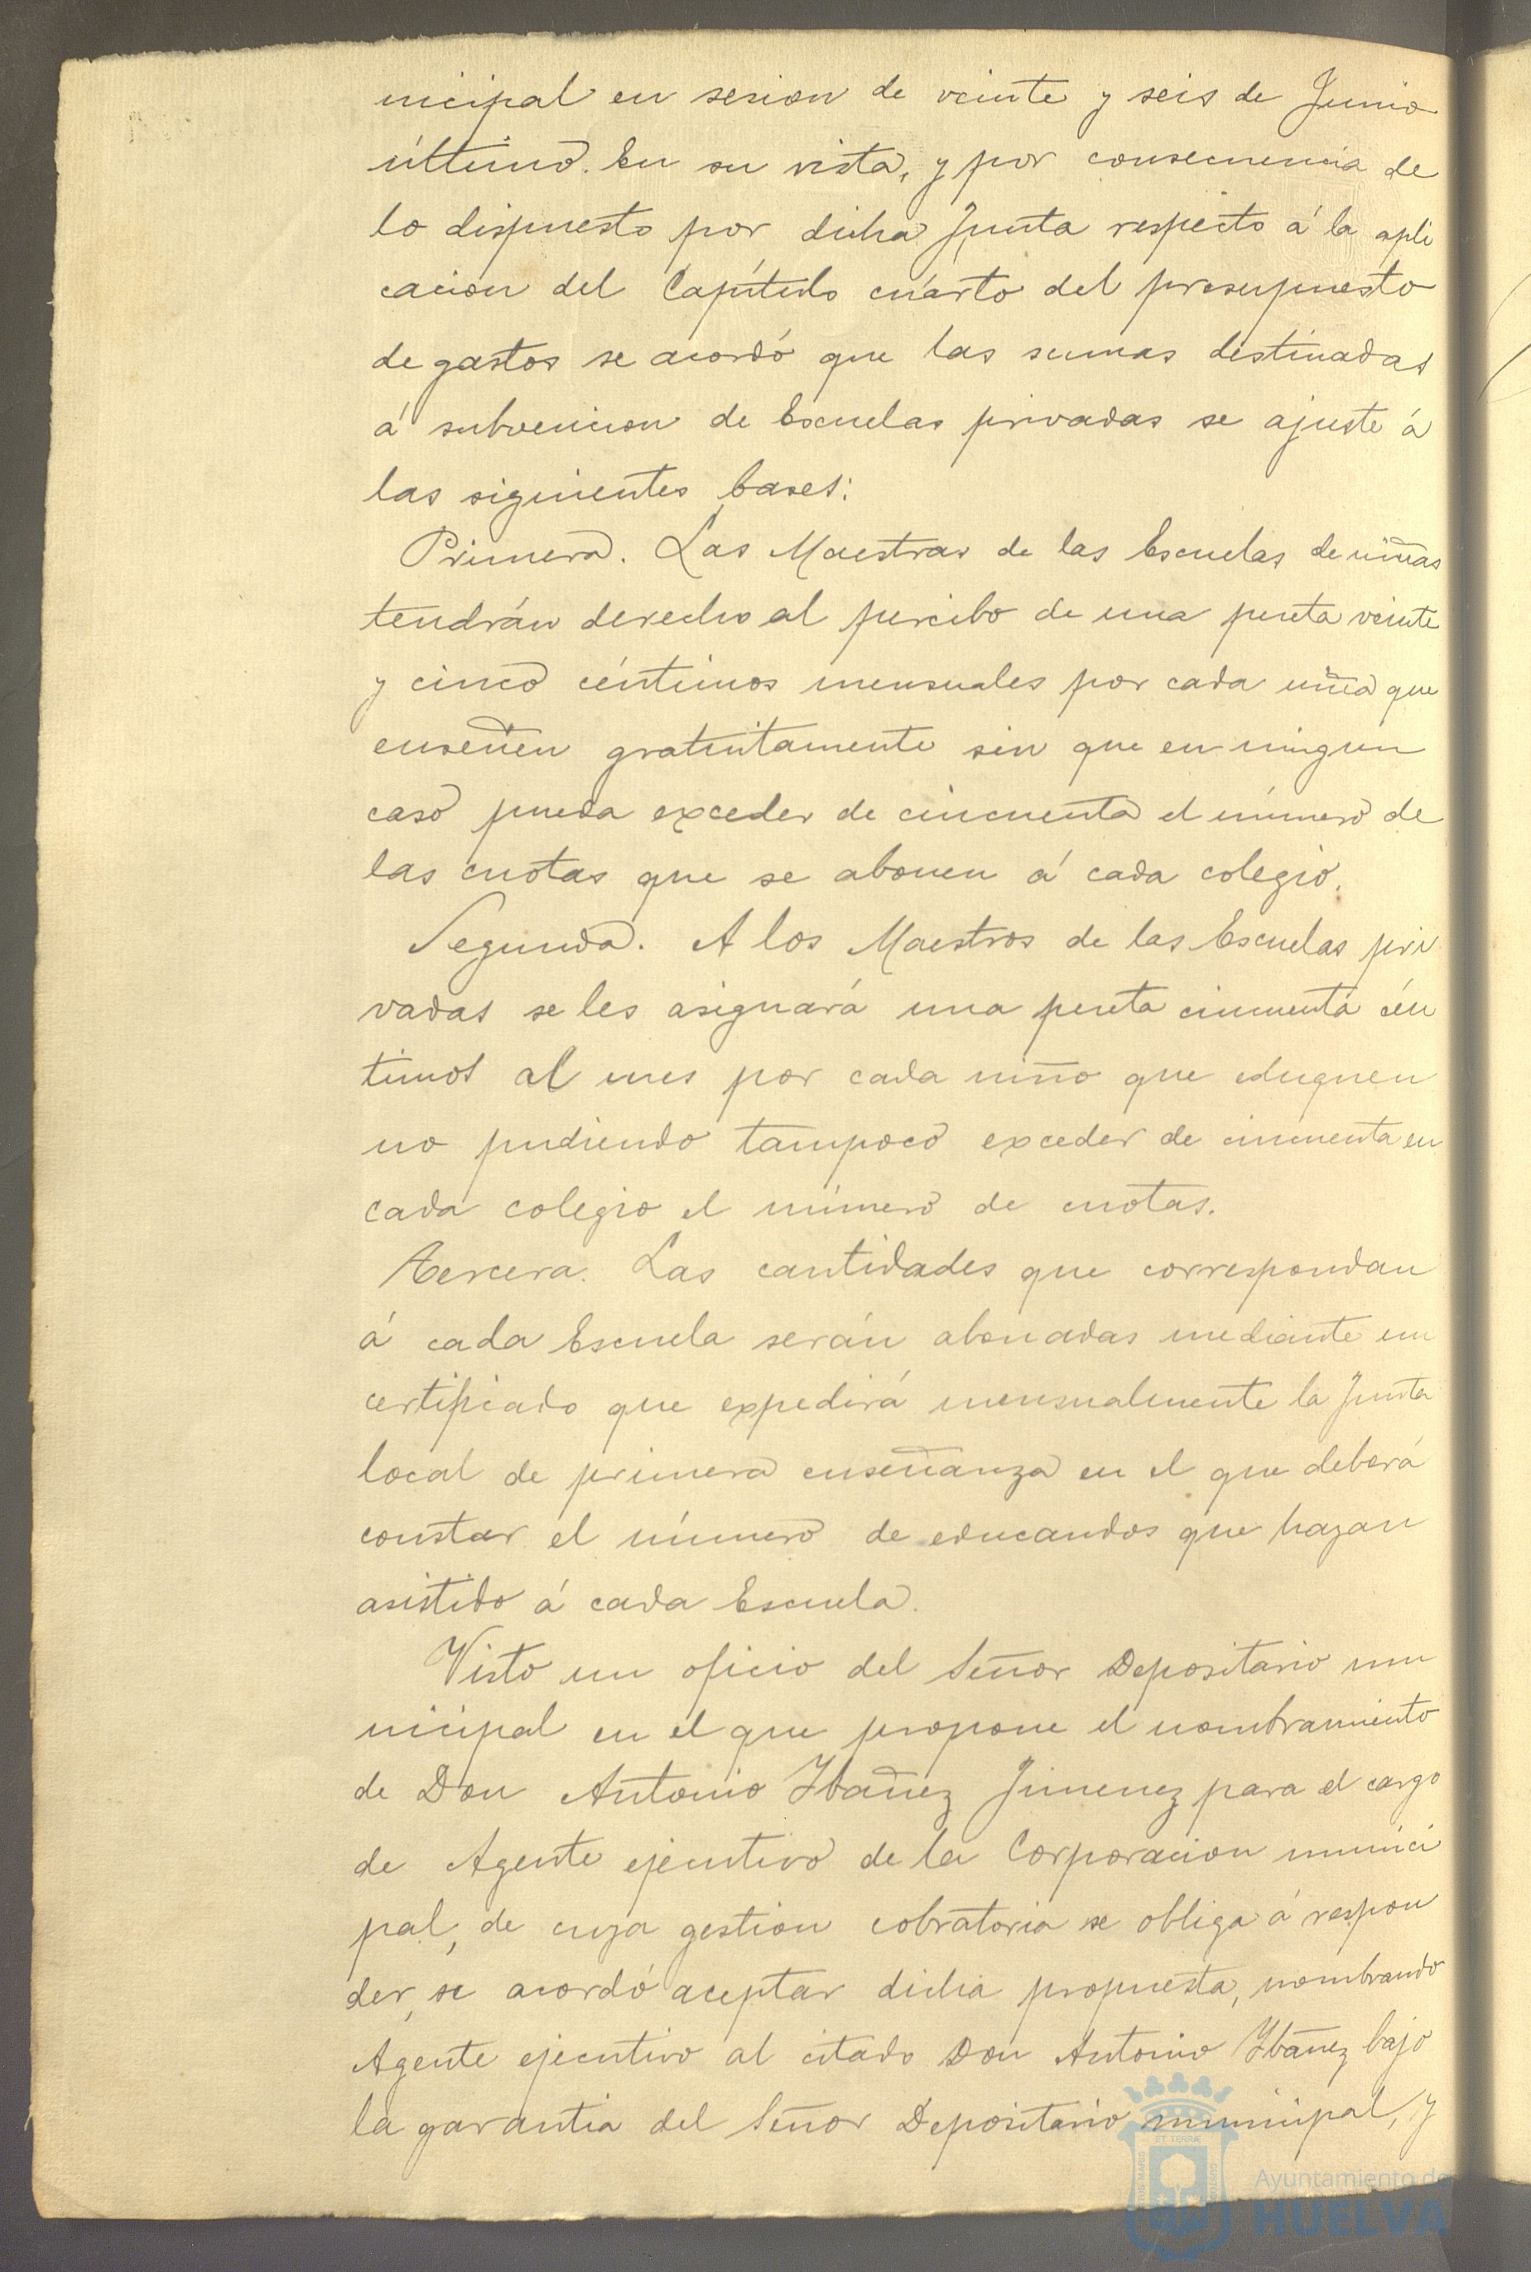 nicipal en sesion de veinte y seis de Junio
último. En su vista, y por consecuencia de
lo dispuesto por dicha Junta respecto á la apli
cacion del Capítulo cuarto del presupuesto
de gastos se acordó que las sumas destinadas
á subvencion de Escuelas privadas se ajuste á
las siguientes bases:
Primera. Las Maestras de las Escuelas de niñas
tendrán derecho al percibo de una peseta veinte
y cinco céntimos mensuales por cada niña que
enseñen gratuitamente sin que en ningun
caso pueda exceder de cincuenta el número de
las cuotas que se abonen á cada colegio.
Segunda. A los Maestros de las Escuelas pri
vadas se les asignará una peseta cincuenta cén
timos al mes por cada niño que eduquen
no pudiendo tampoco exceder de cincuenta en
cada colegio el número de cuotas.
Tercera. Las cantidades que correspondan
á cada Escuela serán abonadas mediante un
certificado que expedirá mensualmente la Junta
local de primera enseñanza en el que deberá
constar el número de educandos que hayan
asistido á cada Escuela.
Visto un oficio del Señor Depositario mu
nicipal en el que propone el nombramiento
de Don Antonio Ybañez Jimenez para el cargo
de Agente ejecutivo de la Corporacion munici
pal, de cuya gestion cobratoria se obliga á respon
der, se acordó aceptar dicha propuesta, nombrando
Agente ejecutivo al citado Don Antonio Ybañez bajo
la garantia del Señor Depositario municipal, y
Ayuntamiento de
HUELVA